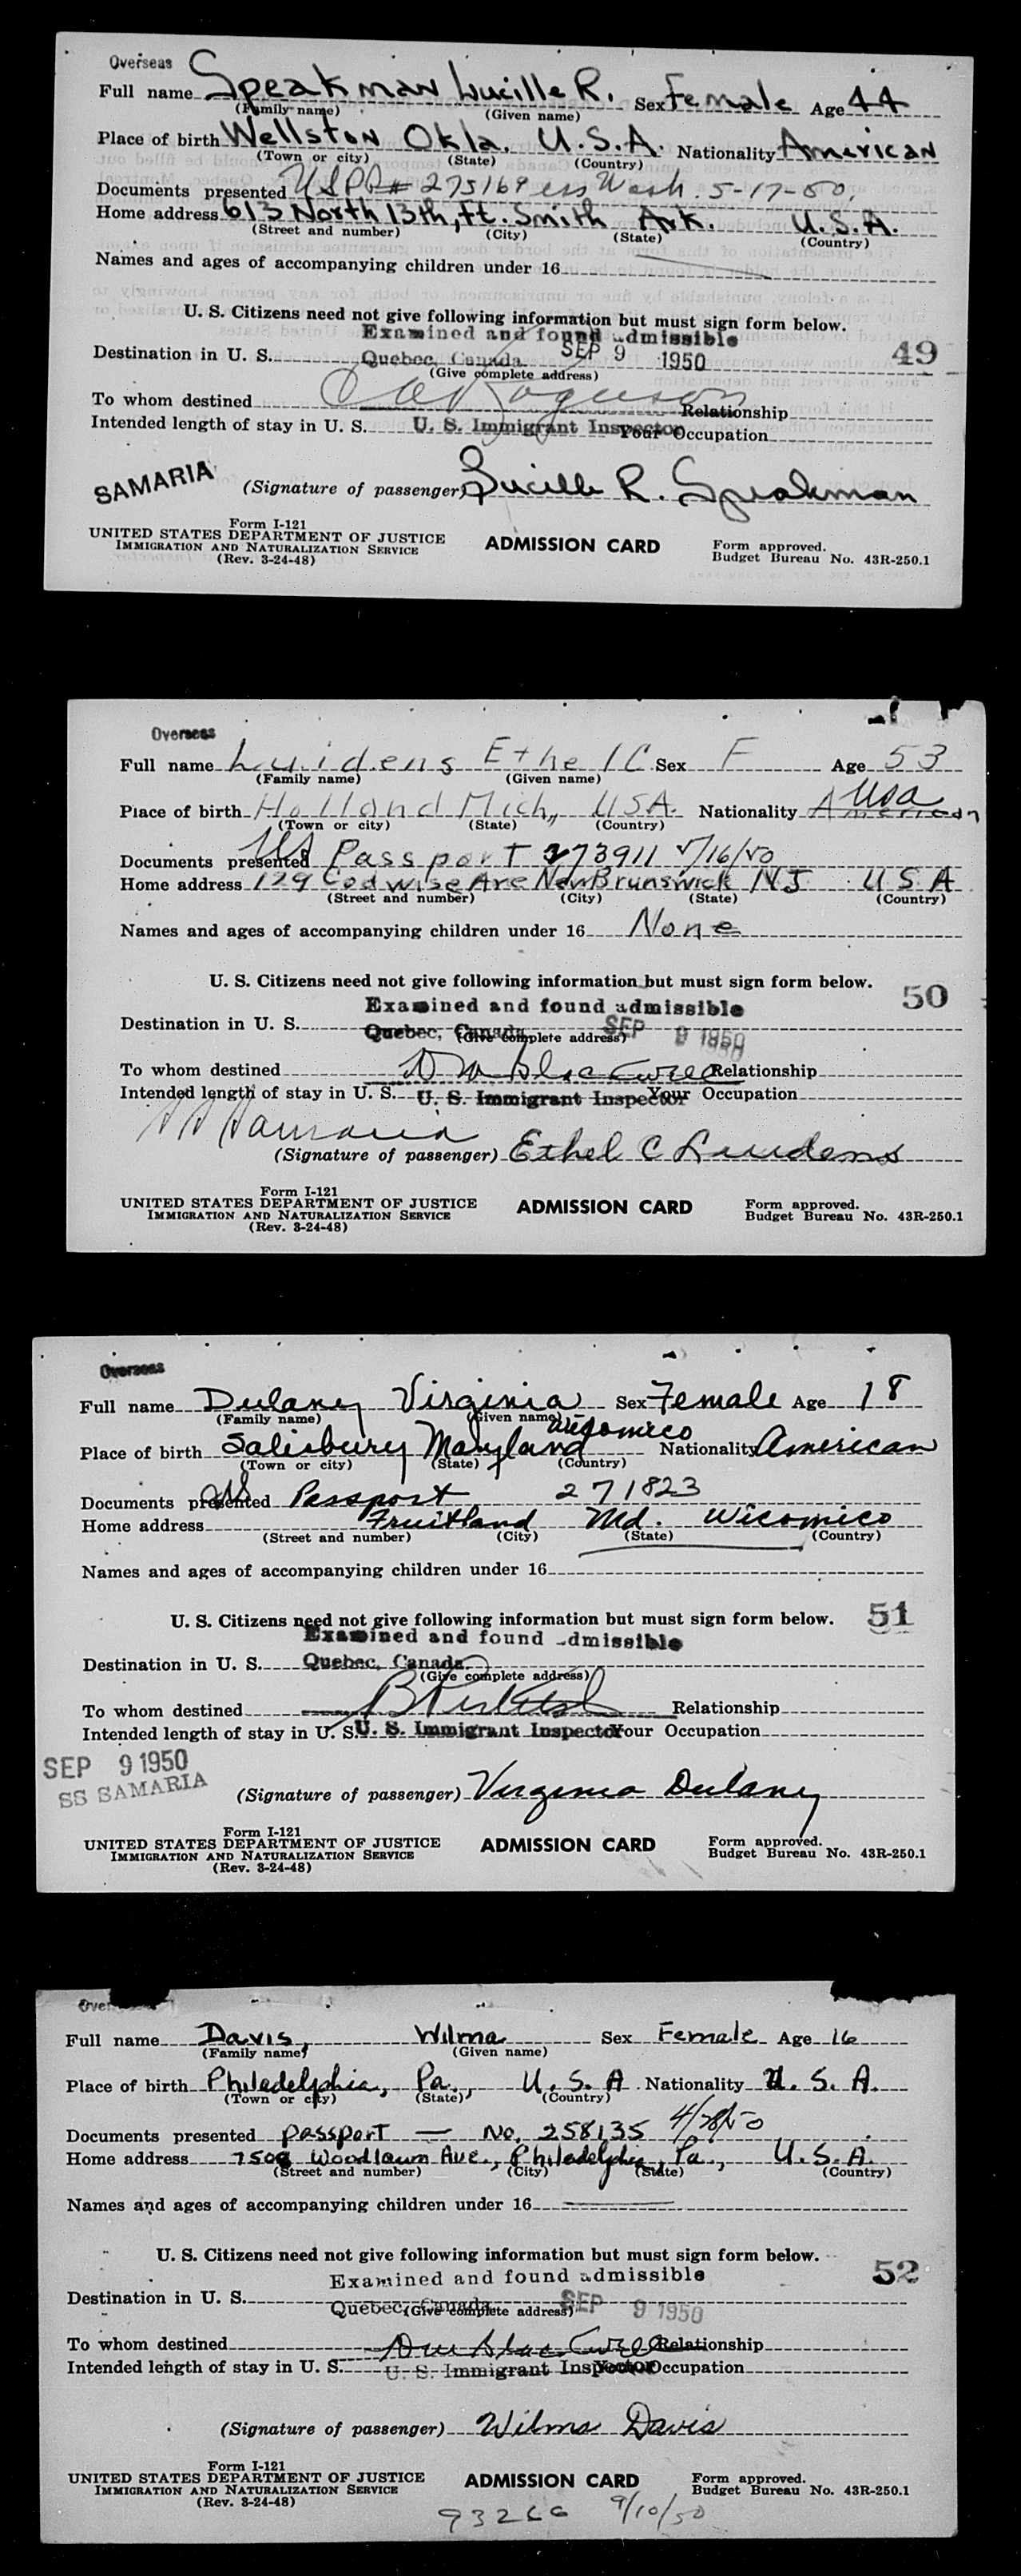 Overseas
Full name Speakman Lucille R. Sex Female Age 44
(Family name) (Given name)
Place of birth Wellston Okla. U.S.A. Nationality American
(Town or city) (State) (Country)
Documents presented USPP# 275169 Wash. 5-17-50.
Home address 613 North 13th, Ft. Smith Ark. U.S.A.
(Street and number) (City) (State) (Country)
Names and ages of accompanying children under 16
U. S. Citizens need not give following information but must sign form below.
Examined and found admissible
Destination in U. S. Quebec, Canada SEP 9 1950 49
(Give complete address)
To whom destined Relationship
Intended length of stay in U. S. U. S. Immigrant Inspector Your Occupation
SAMARIA (Signature of passenger) Lucille R. Speakman
Form I-121
UNITED STATES DEPARTMENT OF JUSTICE
IMMIGRATION AND NATURALIZATION SERVICE
(Rev. 3-24-48)
ADMISSION CARD
Form approved.
Budget Bureau No. 43R-250.1
Overseas
Full name Luidens Ethel C Sex F Age 53
(Family name) (Given name)
Place of birth Holland Mich, USA Nationality American USA
(Town or city) (State) (Country)
Documents presented US Passport 273911 5/16/50
Home address 129 Codwise Ave New Brunswick NJ USA
(Street and number) (City) (State) (Country)
Names and ages of accompanying children under 16 None
U. S. Citizens need not give following information but must sign form below.
50
Examined and found admissible
Destination in U. S. Quebec, Canada SEP 9 1950
(Give complete address)
To whom destined Relationship
Intended length of stay in U. S. U. S. Immigrant Inspector Your Occupation
SS Samaria
(Signature of passenger) Ethel C Luidens
Form I-121
UNITED STATES DEPARTMENT OF JUSTICE
IMMIGRATION AND NATURALIZATION SERVICE
(Rev. 3-24-48)
ADMISSION CARD
Form approved.
Budget Bureau No. 43R-250.1
Overseas
Full name Dulany Virginia Sex Female Age 18
(Family name) (Given name)
Place of birth Salisbury Maryland Wicomico Nationality American
(Town or city) (State) (Country)
Documents presented US Passport 271823
Home address Fruitland Md. Wicomico
(Street and number) (City) (State) (Country)
Names and ages of accompanying children under 16
U. S. Citizens need not give following information but must sign form below. 51
Examined and found admissible
Destination in U. S. Quebec, Canada
(Give complete address)
To whom destined Relationship
Intended length of stay in U. S. U. S. Immigrant Inspector Your Occupation
SEP 9 1950
SS SAMARIA
(Signature of passenger) Virginia Dulany
Form I-121
UNITED STATES DEPARTMENT OF JUSTICE
IMMIGRATION AND NATURALIZATION SERVICE
(Rev. 3-24-48)
ADMISSION CARD
Form approved.
Budget Bureau No. 43R-250.1
Full name Davis, Wilma Sex Female Age 16
(Family name) (Given name)
Place of birth Philadelphia, Pa., U.S.A. Nationality U.S.A.
(Town or city) (State) (Country)
Documents presented passport — No. 258135 4/28/50
Home address Woodlawn Ave., Philadelphia, Pa., U.S.A.
(Street and number) (City) (State) (Country)
Names and ages of accompanying children under 16
U. S. Citizens need not give following information but must sign form below.
52
Examined and found admissible
Destination in U. S. Quebec, Canada SEP 9 1950
(Give complete address)
To whom destined Relationship
Intended length of stay in U. S. U. S. Immigrant Inspector Your Occupation
(Signature of passenger) Wilma Davis
Form I-121
UNITED STATES DEPARTMENT OF JUSTICE
IMMIGRATION AND NATURALIZATION SERVICE
(Rev. 3-24-48)
ADMISSION CARD
Form approved.
Budget Bureau No. 43R-250.1
9/10/50